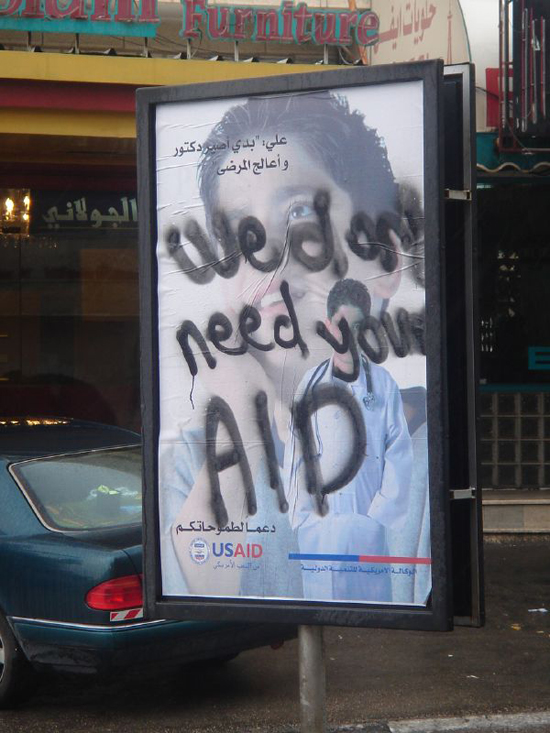 Furniture
حلويات
الجولاني
علي: "بدي أصير دكتور
و أعالج المرضى
We dont
need your
AID
دعما لطموحاتكم
USAID
من الشعب الأمريكي
الوكالة الامريكية للتنمية الدولية